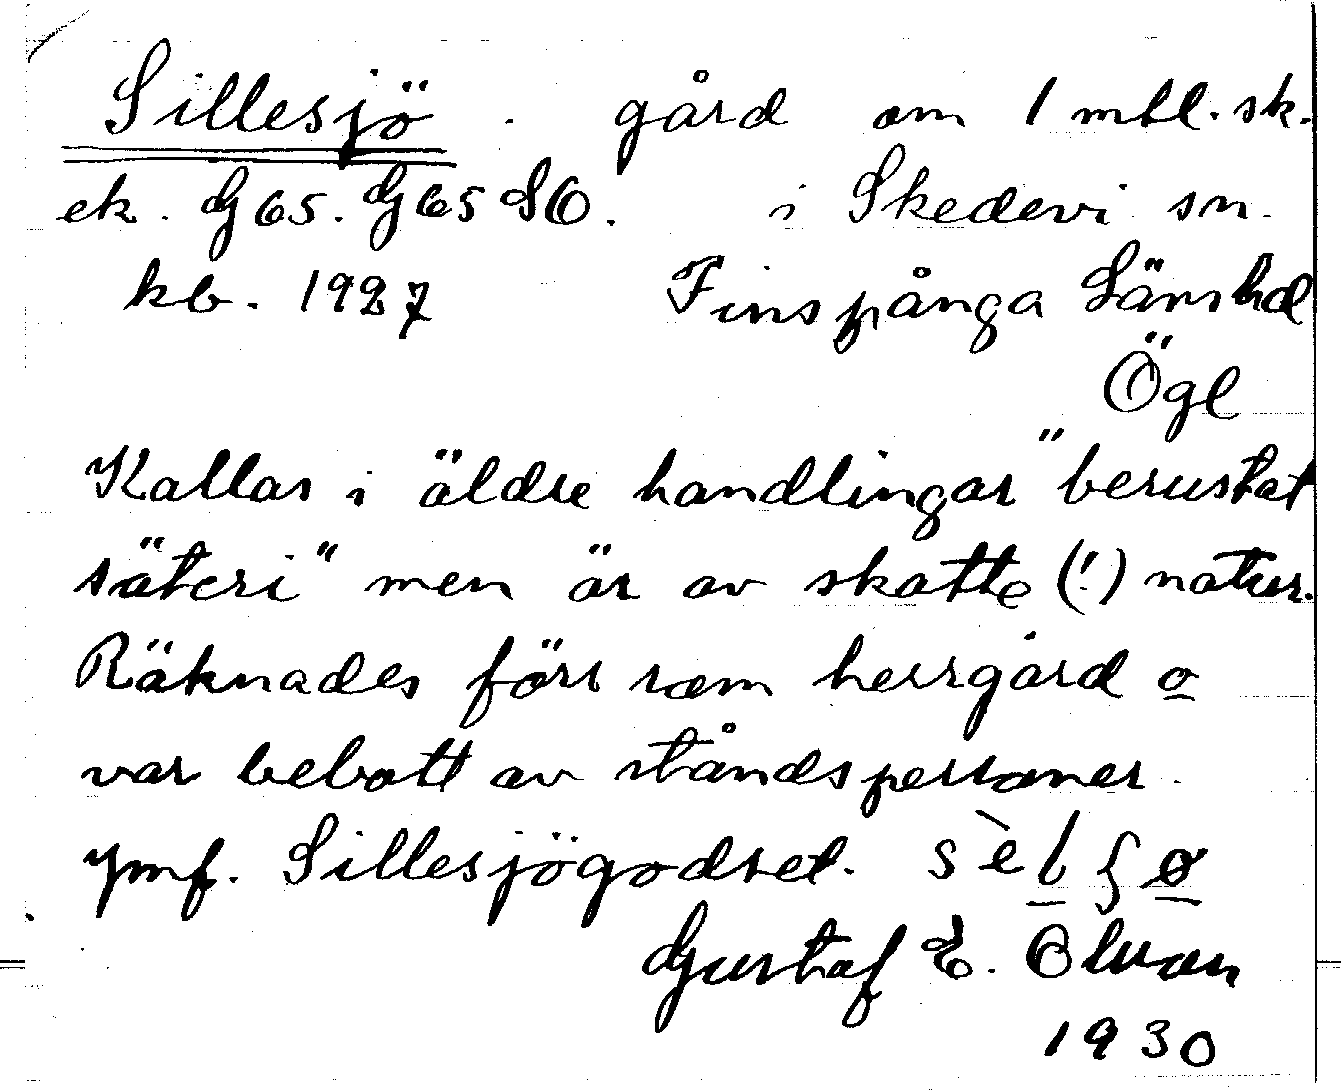 Sillesjö. gård om 1 mtl. sk.
ek. G65. G65 SO. i Skedevi sn.
kb. 1927 Finspånga Länshd
Ögl
Kallas i äldre handlingar "berustat
säteri" men är av skatte (!) natur.
Räknades förr som herrgård o
var bebott av ståndspersoner.
Jmf. Sillesjögodset.
Gustaf E. Olsson
1930